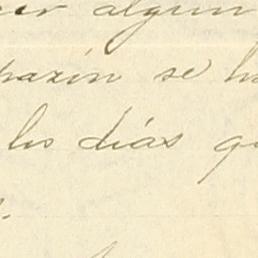 er algun
razón se h
los días q